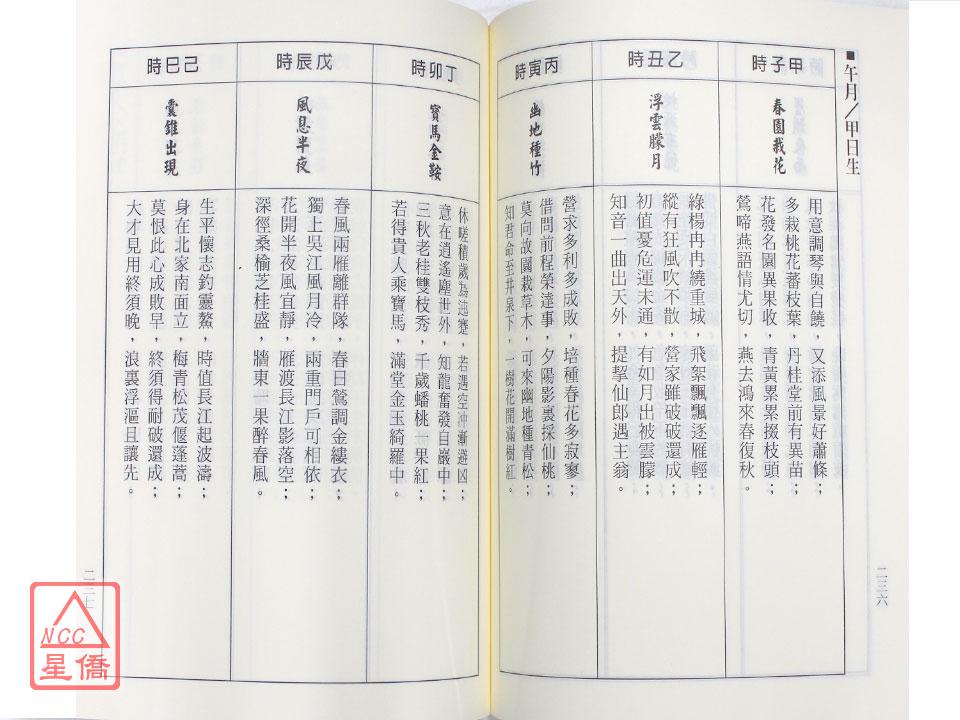 ■午月／甲日生
甲子時
春園栽花
用意調琴與自饒，又添風景好蕭條；
多栽桃花蕃枝葉，丹桂堂前有異苗；
花發名園異果收，青黃累累掇枝頭；
鶯啼燕語情尤切，燕去鴻來春復秋。
乙丑時
浮雲朦月
綠楊冉冉繞重城，飛絮飄飄逐雁輕；
縱有狂風吹不散，營家雖破破還成；
初值憂危運未通，有如月出被雲朦；
知音一曲出天外，提挈仙郎遇主翁。
丙寅時
幽地種竹
營求多利多成敗，培種春花多寂寥；
借問前程榮達事，夕陽影裏採仙桃；
莫向故園栽草木，可來幽地種青松；
知君命至井泉下，一樹花開滿樹紅。
二三六
丁卯時
寶馬金鞍
休嗟積歲為迍蹇，若遇空沖漸避凶；
意在逍遙塵世外，知龍奮發自巖中；
三秋老桂雙枝秀，千歲蟠桃一果紅；
若得貴人乘寶馬，滿堂金玉綺羅中。
戊辰時
風息半夜
春風兩雁離群隊，春日鶯調金縷衣；
獨上吳江風月冷，兩重門戶可相依；
花開半夜風宜靜，雁渡長江影落空；
深徑桑榆芝桂盛，牆東一果醉春風。
己巳時
囊錐出現
生平懷志釣靈鰲，時值長江起波濤；
身在北家南面立，梅青松茂偃蓬蒿；
莫恨此心成敗早，終須得耐破還成；
大才見用終須晚，浪裏浮漚且讓先。
二三七
NCC
星僑